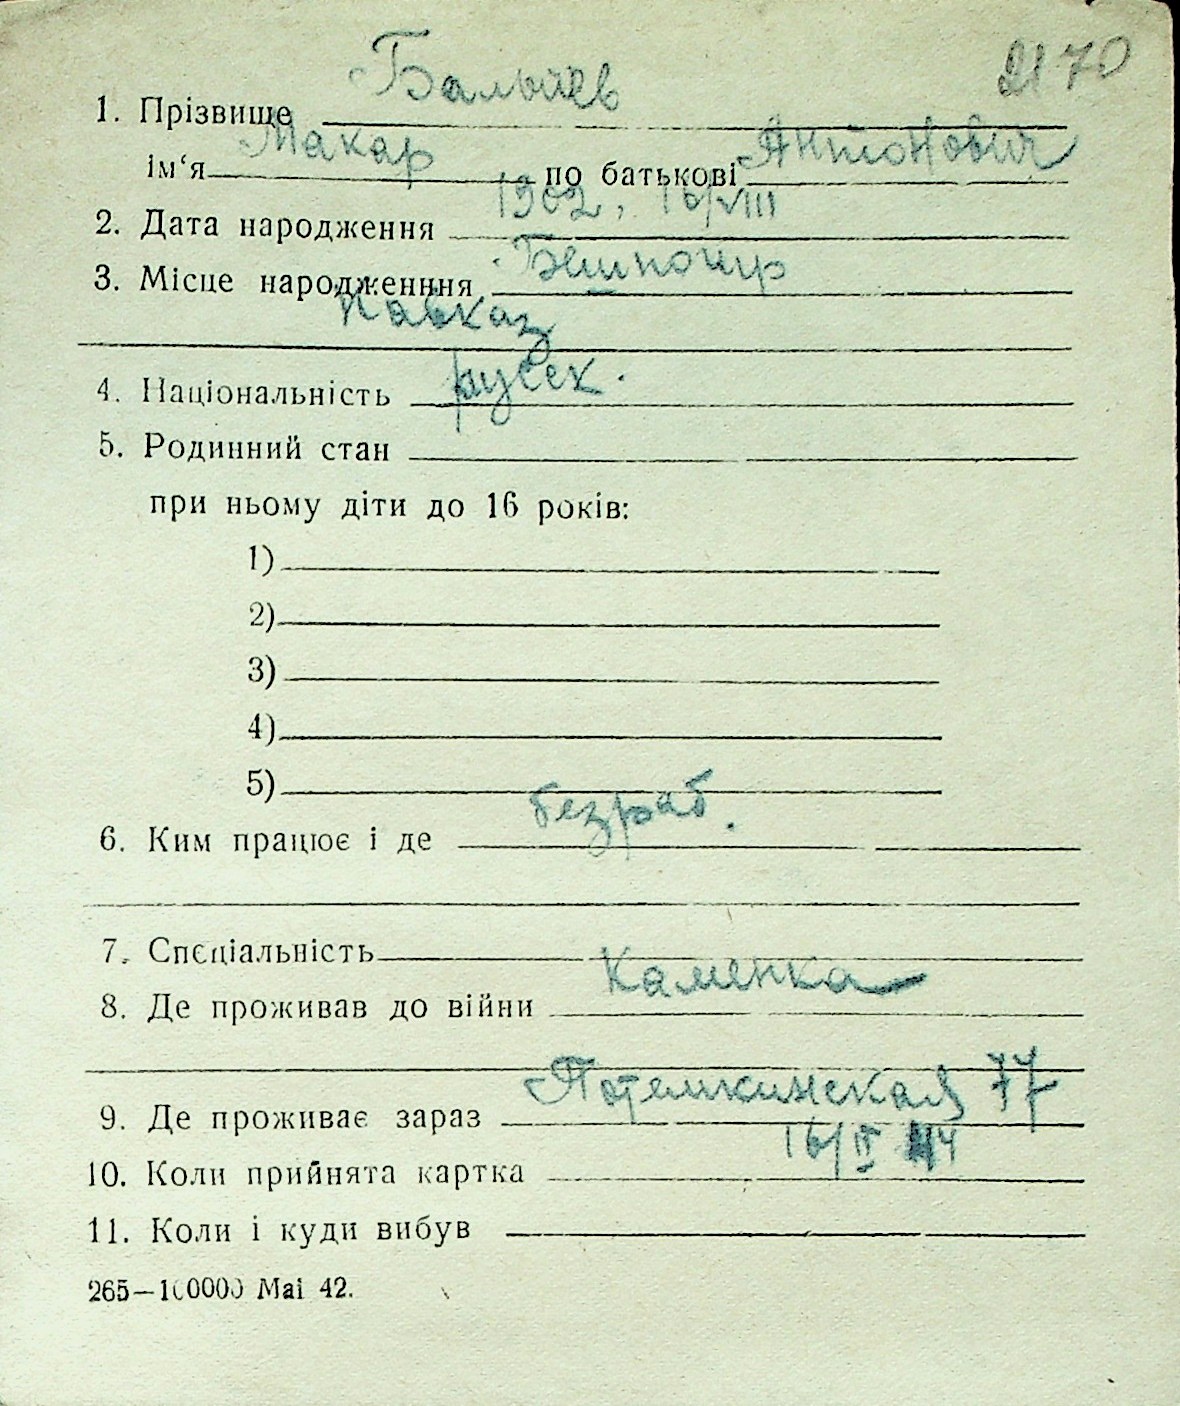 2170
1. Прізвище
Макар Антонович
ім‘я по батькові
1902, 16/VIII
2. Дата народження
3. Місце народженння
Кавказ
4. Національність русск.
5. Родинний стан
при ньому діти до 16 років:
1)
2)
3)
4)
5)
безраб.
6. Ким працює і де
7. Спеціальність
8. Де проживав до війни Каменка
9. Де проживає зараз Потемкинская 77
16/II 44
10. Коли прийнята картка
11. Коли і куди вибув
265—100000 Маі 42.